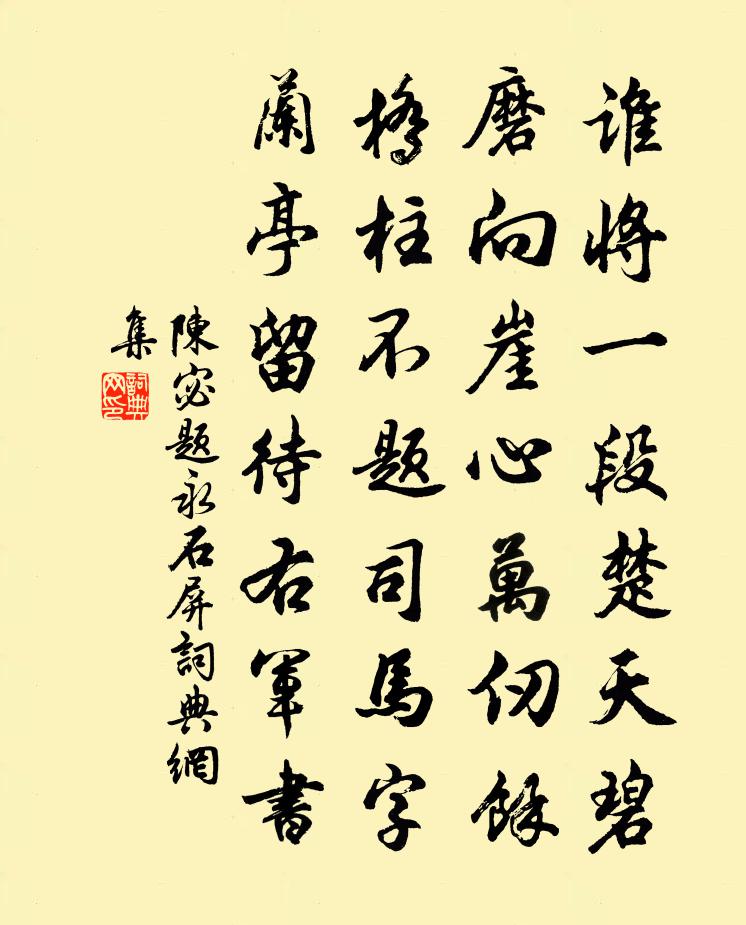 谁将一段楚天碧
磨向崖心萬仞餘
橋柱不題司馬字
蘭亭留待右軍書
陳宓題永石屏詞典網
集
詞典
网印